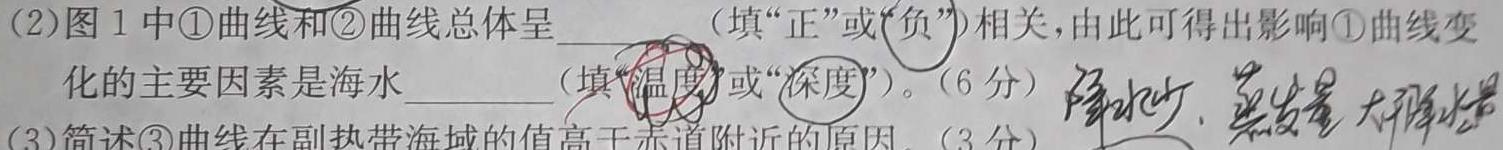 (2)图1中①曲线和②曲线总体呈______(填“正”或“负”)相关,由此可得出影响①曲线变
化的主要因素是海水______(填“温度”或“深度”)。(6分) 降水少、蒸发量大于降水量
(3)简述③曲线在副热带海域的值高于赤道附近的原因。(3分)